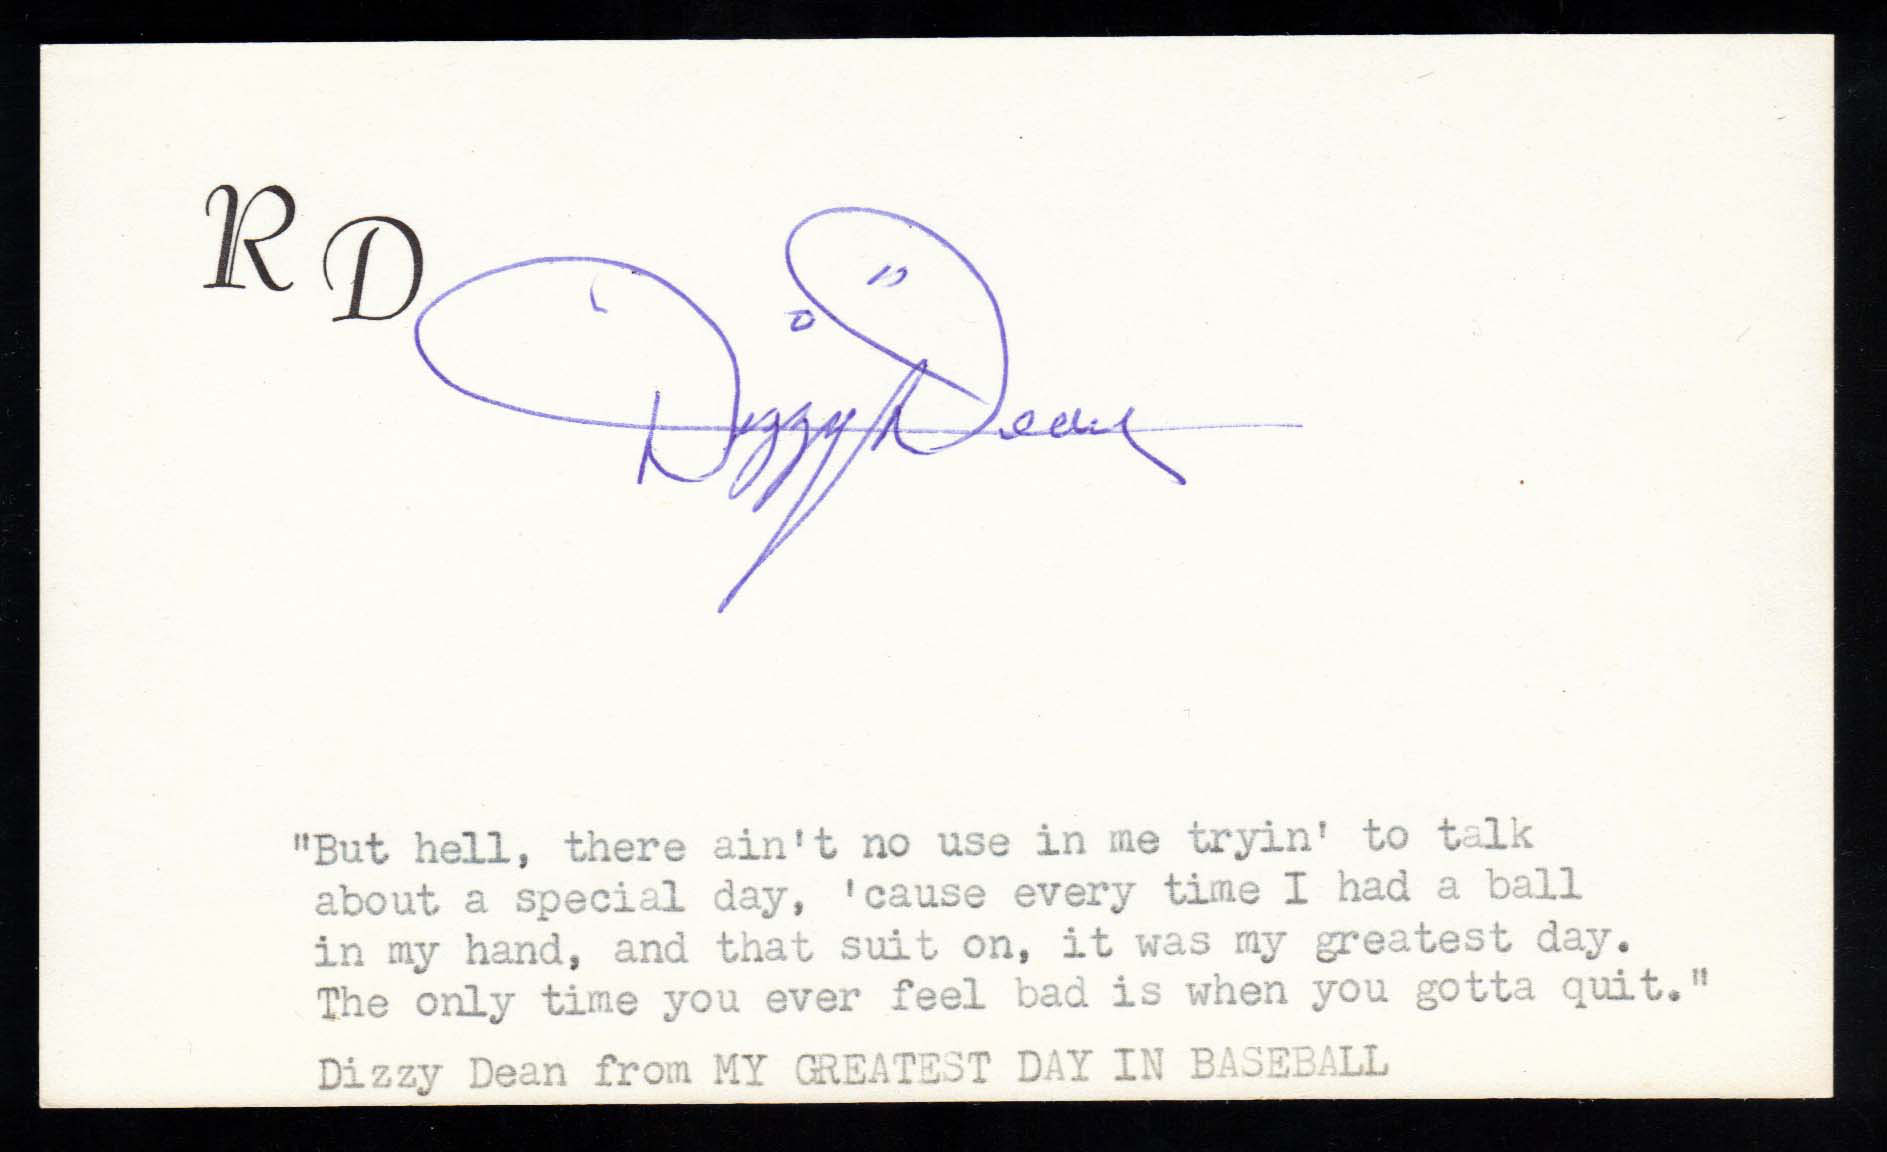 R D
Dizzy Dean
"But hell, there ain't no use in me tryin' to talk
about a special day, 'cause every time I had a ball
in my hand, and that suit on, it was my greatest day.
The only time you ever feel bad is when you gotta quit."
Dizzy Dean from MY GREATEST DAY IN BASEBALL